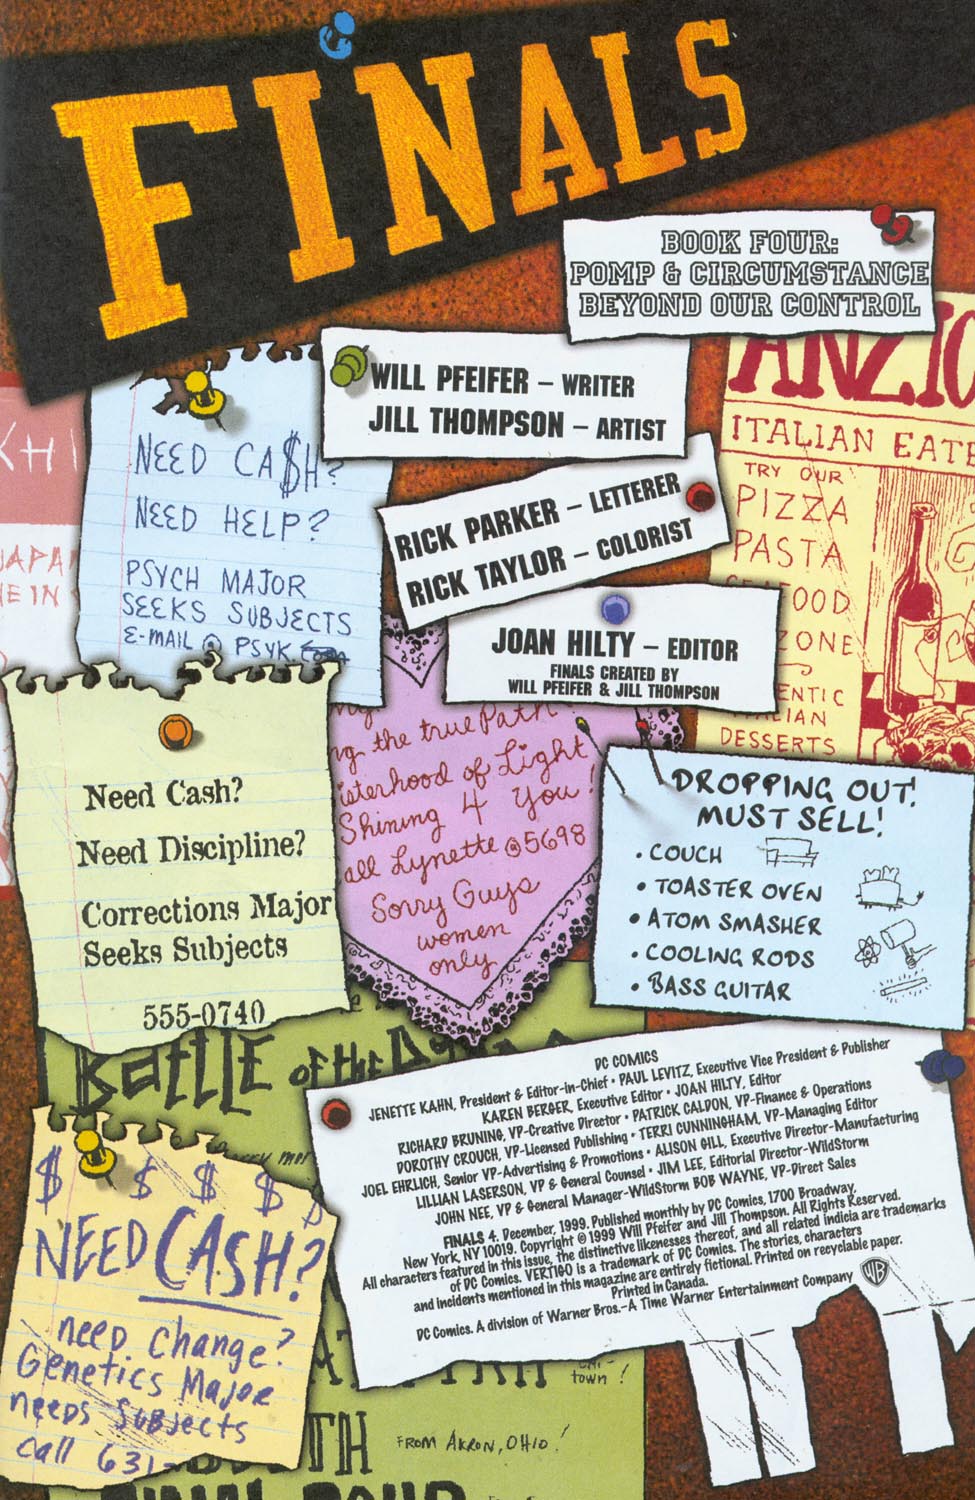 FINALS
BOOK FOUR:
POMP & CIRCUMSTANCE
BEYOND OUR CONTROL
WILL PFEIFER – WRITER
JILL THOMPSON – ARTIST
RICK PARKER – LETTERER
RICK TAYLOR – COLORIST
JOAN HILTY – EDITOR
FINALS CREATED BY
WILL PFEIFER & JILL THOMPSON
NEED CA$H?
NEED HELP?
PSYCH MAJOR
SEEKS SUBJECTS
E-MAIL @ PSYK.
KHI
JAPA
NE IN
ANZIO
ITALIAN EATE
TRY OUR
PIZZA
PASTA
OOD
ZONE
ENTIC
ALIAN
DESSERTS
Need Cash?
Need Discipline?
Corrections Major
Seeks Subjects
555-0740
ng the true Path
isterhood of Light
Shining 4 You!
all Lynette @5698
Sorry Guys
women
only
DROPPING OUT!
MUST SELL!
• COUCH
• TOASTER OVEN
• ATOM SMASHER
• COOLING RODS
• BASS GUITAR
BATTLE OF THE
$ $ $ $ $
NEED CASH?
need change?
Genetics Major
needs subjects
call 631-
DC COMICS
JENETTE KAHN, President & Editor-in-Chief • PAUL LEVITZ, Executive Vice President & Publisher
KAREN BERGER, Executive Editor • JOAN HILTY, Editor
RICHARD BRUNING, VP-Creative Director • PATRICK CALDON, VP-Finance & Operations
DOROTHY CROUCH, VP-Licensed Publishing • TERRI CUNNINGHAM, VP-Managing Editor
JOEL EHRLICH, Senior VP-Advertising & Promotions • ALISON GILL, Executive Director-Manufacturing
LILLIAN LASERSON, VP & General Counsel • JIM LEE, Editorial Director-WildStorm
JOHN NEE, VP & General Manager-WildStorm BOB WAYNE, VP-Direct Sales
FINALS 4. December, 1999. Published monthly by DC Comics, 1700 Broadway,
New York, NY 10019. Copyright © 1999 Will Pfeifer and Jill Thompson. All Rights Reserved.
All characters featured in this issue, the distinctive likenesses thereof, and all related indicia are trademarks
of DC Comics. VERTIGO is a trademark of DC Comics. The stories, characters
and incidents mentioned in this magazine are entirely fictional. Printed on recyclable paper.
Printed in Canada.
DC Comics. A division of Warner Bros.–A Time Warner Entertainment Company
WB
town!
FROM AKRON, OHIO!
FINAL FOUR